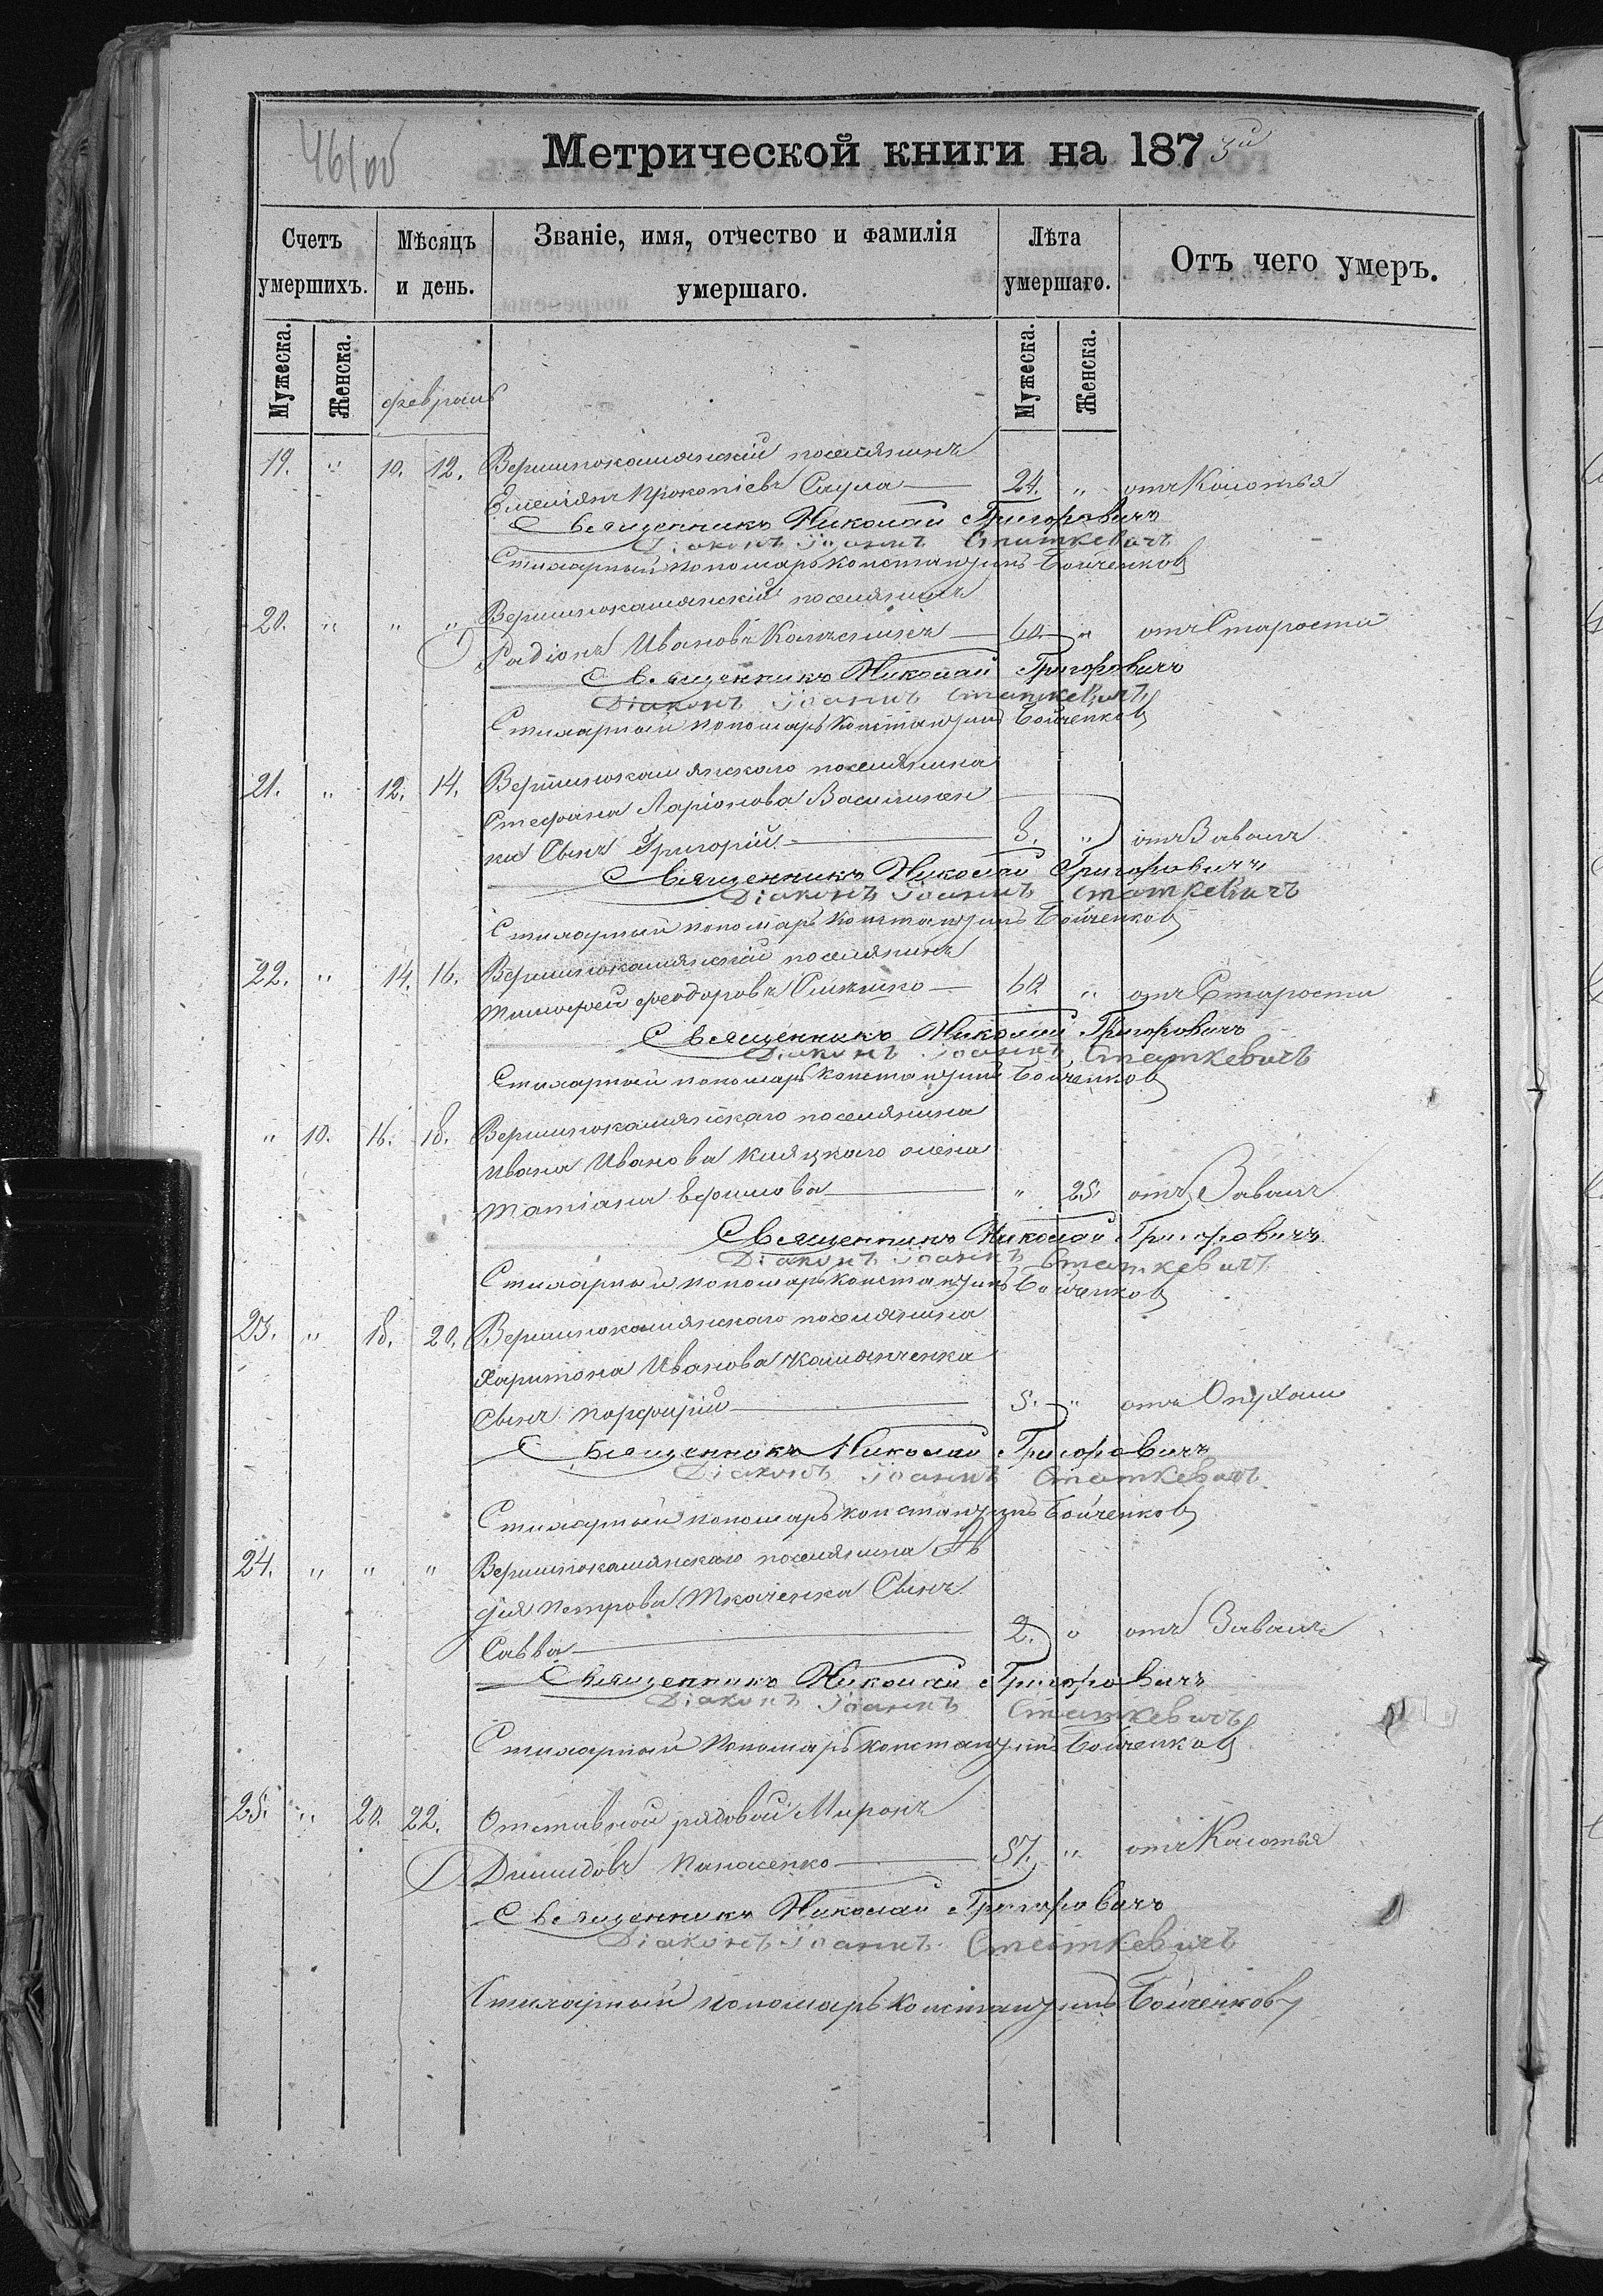 Метрической книги на 1873й
Счетъ умершихъ.
Мѣсяцъ и день.
Званіе, имя, отчество и фамилія умершаго.
Лѣта умершаго.
Отъ чего умеръ.
Мужеска.
Женска.
февраль
Мужеска.
Женска.
19. " 10. 12. Вершинокамянскій поселянинъ
Емеліянъ Прокопіевъ Саула 24. " отъ Колотья
Священникъ Николай Григоровичъ
Діаконъ Іоаннъ Статкевичъ
Стихарный пономарь Константинъ Бойченковъ
20. " " " Вершинокамянскій поселянинъ
Радіонъ Ивановъ 60 " отъ Старости
Священникъ Николай Григоровичъ
Діаконъ Іоаннъ Статкевичъ
Стихарный пономарь Константинъ Бойченковъ
21. " 12. 14. Вершинокамянскаго поселянина
Стефана Ларіонова Василинен
ка Сынъ Григорій 8. " отъ Завалъ
Священникъ Николай Григоровичъ
Діаконъ Іоаннъ Статкевичъ
Стихарный пономарь Константинъ Бойченковъ
22. " 14. 16. Вершинокамянскій поселянинъ
Тимофей Феодоровъ 60 " отъ Старости
Священникъ Николай Григоровичъ
Діаконъ Іоаннъ Статкевичъ
Стихарный пономарь Константинъ Бойченковъ
" 10. 16. 18. Вершинокамянскаго поселянина
Ивана Иванова жена
Татіана Ефимова " 25. отъ Завалъ
Священникъ Николай Григоровичъ
Діаконъ Іоаннъ Статкевичъ
Стихарный пономарь Константинъ Бойченковъ
23. " 18. 20. Вершинокамянскаго поселянина
Харитона Иванова Камянченка
Сынъ Порфирій 5. " отъ Опухоли
Священникъ Николай Григоровичъ
Діаконъ Іоаннъ Статкевичъ
Стихарный пономарь Константинъ Бойченковъ
24. " " " Вершинокамянскаго поселянина Ав
дія Петрова Ткаченка Сынъ
Савва 2. " отъ Завалъ
Священникъ Николай Григоровичъ
Діаконъ Іоаннъ Статкевичъ
Стихарный пономарь Константинъ Бойченковъ
25. " 20. 22. Отставной рядовой Миронъ
Демидовъ Панасенко 57. " отъ Колотья
Священникъ Николай Григоровичъ
Діаконъ Іоаннъ Статкевичъ
Стихарный пономарь Константинъ Бойченковъ